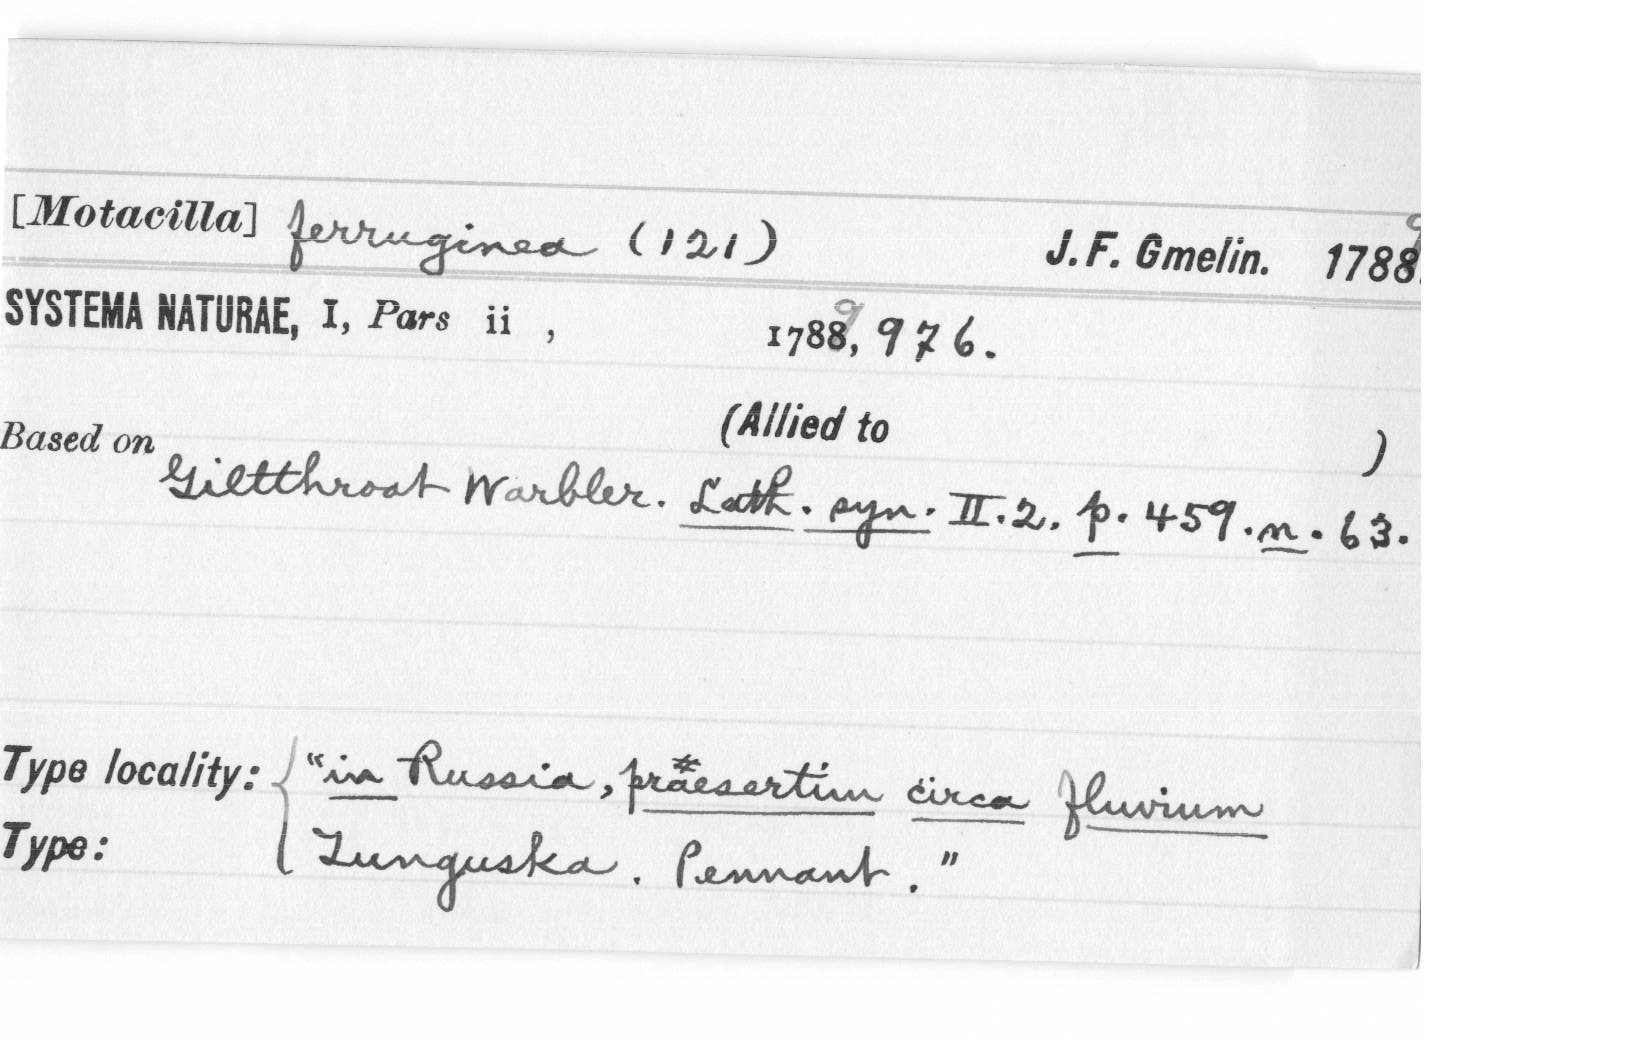 [Motacilla] ferruginea (121) J. F. Gmelin. 1788. 9
SYSTEMA NATURAE, I, Pars ii , 1788, 9 976.
(Allied to )
Based on Giltthroat Warbler. Lath. syn. II. 2. p. 459. n. 63.
Type locality: "in Russia, praesertim circa fluvium
Type: Tunguska. Pennant."